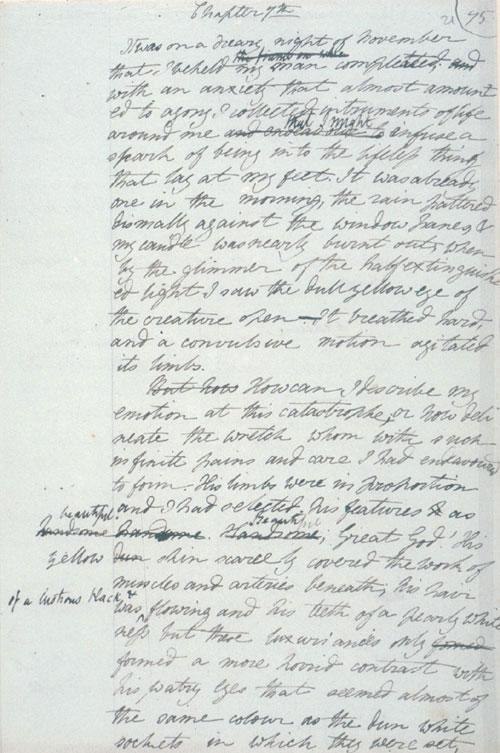 Chapter 7th
21 95
It was on a dreary night of November
the frame on whic
that I beheld my man compleated; and
with an anxiety that almost amount
ed to agony, I collected instruments of life
that I might
around me and endeavour to infuse a
spark of being into the lifeless thing
that lay at my feet. It was already
one in the morning, the rain pattered
dismally against the window panes &
my candle was nearly burnt out, when
by the glimmer of the half extinguish
ed light I saw the dull yellow eye of
the creature open — It breathed hard,
and a convulsive motion agitated
its limbs.
But how How can I describe my
emotion at this catastrophe, or how deli
neate the wretch whom with such
infinite pains and care I had endeavoured
to form. His limbs were in proportion
and I had selected his features as
beautiful. Beautiful
handsome handsome. Handsome; Great God! His
yellow dun skin scarcely covered the work of
muscles and arteries beneath; his hair
of a lustrous black, &
was flowing and his teeth of a pearly white
ness but these luxuriances only formed
formed a more horrid contrast with
his watry eyes that seemed almost of
the same colour as the dun white
sockets in which they were set